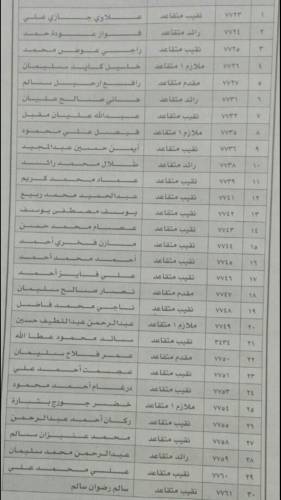 ١ ٧٧٢٣ نقيب متقاعد علاوي جازي علي
٢ ٧٧٢٤ رائد متقاعد فواز عودة حمد
٣ ٧٧٢٥ نقيب متقاعد راجي عوض محمد
٤ ٧٧٢٦ ملازم ١ متقاعد خليل كايد سليمان
٥ ٧٧٢٧ مقدم متقاعد رافع ارحيل سالم
٦ ٧٧٣١ رائد متقاعد هاني صالح عليان
٧ ٧٧٣٢ نقيب متقاعد عبدالله عليان مقبل
٨ ٧٧٣٥ ملازم ١ متقاعد فيصل علي محمود
٩ ٧٧٣٦ نقيب متقاعد أيمن حسين عبدالمجيد
١٠ ٧٧٣٨ رائد متقاعد طلال محمد راشد
١١ ٧٧٣٩ نقيب متقاعد عماد محمد كريم
١٢ ٧٧٤١ نقيب متقاعد عبدالحميد محمد ربيع
١٣ ٧٧٤٢ نقيب متقاعد يوسف مصطفى يوسف
١٤ ٧٧٤٣ نقيب متقاعد عصام محمد حسن
١٥ ٧٧٤٤ نقيب متقاعد مازن فخري أحمد
١٦ ٧٧٤٥ نقيب متقاعد أحمد محمد أحمد
١٧ ٧٧٤٦ نقيب متقاعد علي فايز أحمد
١٨ ٧٧٤٧ مقدم متقاعد صالح سليمان
١٩ ٧٧٤٨ نقيب متقاعد ناجي محمد فاضل
٢٠ ٧٧٤٩ ملازم ١ متقاعد عبدالرحمن عبداللطيف حسين
٢١ ٣٤٣٤ نقيب متقاعد سائد محمود عطا الله
٢٢ ٧٧٥٠ مقدم متقاعد عمر فلاح سليمان
٢٣ ٧٧٥١ نقيب متقاعد عصمت أحمد علي
٢٤ ٧٧٥٣ نقيب متقاعد درغام أحمد محمود
٢٥ ٧٧٥٤ ملازم ١ متقاعد خضر جورج بشارة
٢٦ ٧٧٥٥ نقيب متقاعد ركان أحمد عبدالرحمن
٢٧ ٧٧٥٨ نقيب متقاعد محمد عنيزان سالم
٢٨ ٧٧٥٩ رائد متقاعد عبدالرحمن محمد سليمان
٢٩ ٧٧٦٠ نقيب متقاعد علي محمد علي
٣٠ ٧٧٦١ نقيب متقاعد سالم رضوان سالم